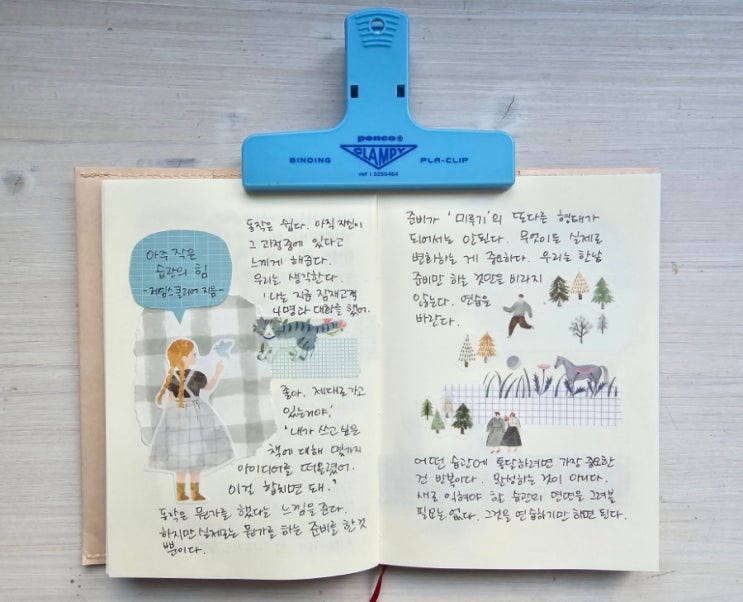 penco
CLAMPY
BINDING PLA-CLIP
ref : 3250464
아주 작은
습관의 힘
-제임스클리어 지음-
동작은 쉽다. 아직 자신이
그 과정중에 있다고
느끼게 해준다.
우리는 생각한다.
'나는 지금 잠재고객
4명과 대화를 했어.
좋아. 제대로 가고
있는거야.'
'내가 쓰고 싶은
책에 대해 몇가지
아이디어를 떠올렸어.
이걸 합치면 돼.'
동작은 뭔가를 했다는 느낌을 준다.
하지만 실제로는 뭔가를 하는 준비를 한 것
뿐이다.
준비가 '미루기'의 또다른 형태가
되어서는 안된다. 무엇이든 실제로
변화하는 게 중요하다. 우리는 한낱
준비만 하는 것만을 바라지
않는다. 연습을
바란다.
어떤 습관에 통달하려면 가장 중요한
건 반복이다. 완성하는 것이 아니다.
새로 익혀야 할 습관의 면면을 그려볼
필요는 없다. 그것을 연습하기만 하면 된다.